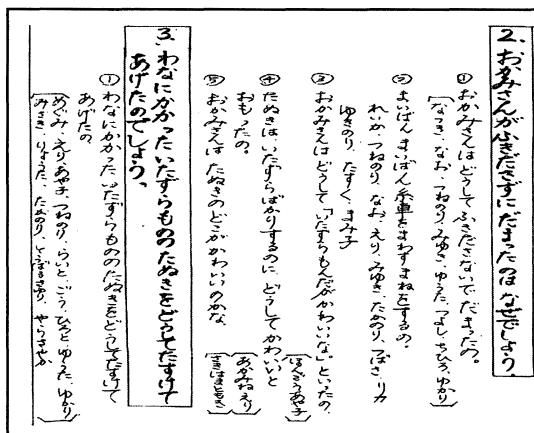 2、おかみさんがふきださずにだまったのはなぜでしょう。
① おかみさんはどうしてふきださないでだまったの。
(なつき、なお、つねのり、みゆき、ゆうた、つよし、ちひろ、ゆかり)
② まいばんまいばん糸車をまわすまねをするの。
れいか、つねのり、なお、えり、みゆき、たかのり、つばさ、リカ
ゆきのり、たすく、まみ子
③ おかみさんはどうして「いたずらもんだがかわいいな」といったの。
(ほんごうあや子)
④ たぬきは、いたずらばかりするのに、どうしてかわいいと
おもったの。
(あかみねえり)
⑤ おかみさんは たぬきのどこがかわいいのかな。
(さきはまともき)
3、わなにかかったいたずらもののたぬきをどうしてたすけて
あげたのでしょう。
① わなにかかったいたずらもののたぬきをどうしてたすけて
あげたの
めぐみ、えり、あや子、つねのり、らいと、ごう、ひろと、ゆうた、ゆかり
みさき、りょうた、たかのり